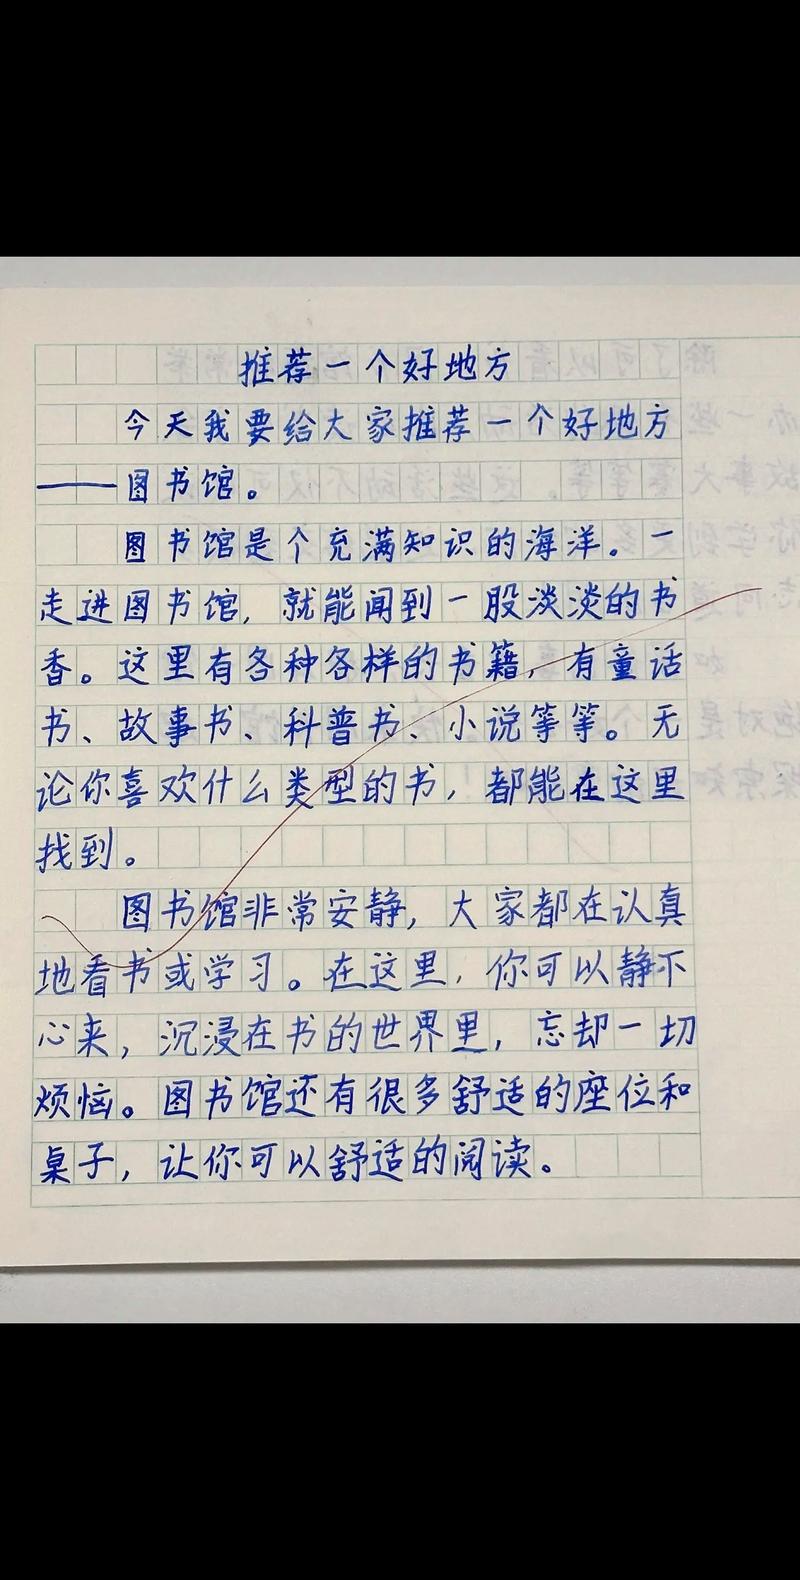 推荐一个好地方
今天我要给大家推荐一个好地方
——图书馆。
图书馆是个充满知识的海洋。一
走进图书馆，就能闻到一股淡淡的书
香。这里有各种各样的书籍，有童话
书、故事书、科普书、小说等等。无
论你喜欢什么类型的书，都能在这里
找到。
图书馆非常安静，大家都在认真
地看书或学习。在这里，你可以静下
心来，沉浸在书的世界里，忘却一切
烦恼。图书馆还有很多舒适的座位和
桌子，让你可以舒适的阅读。